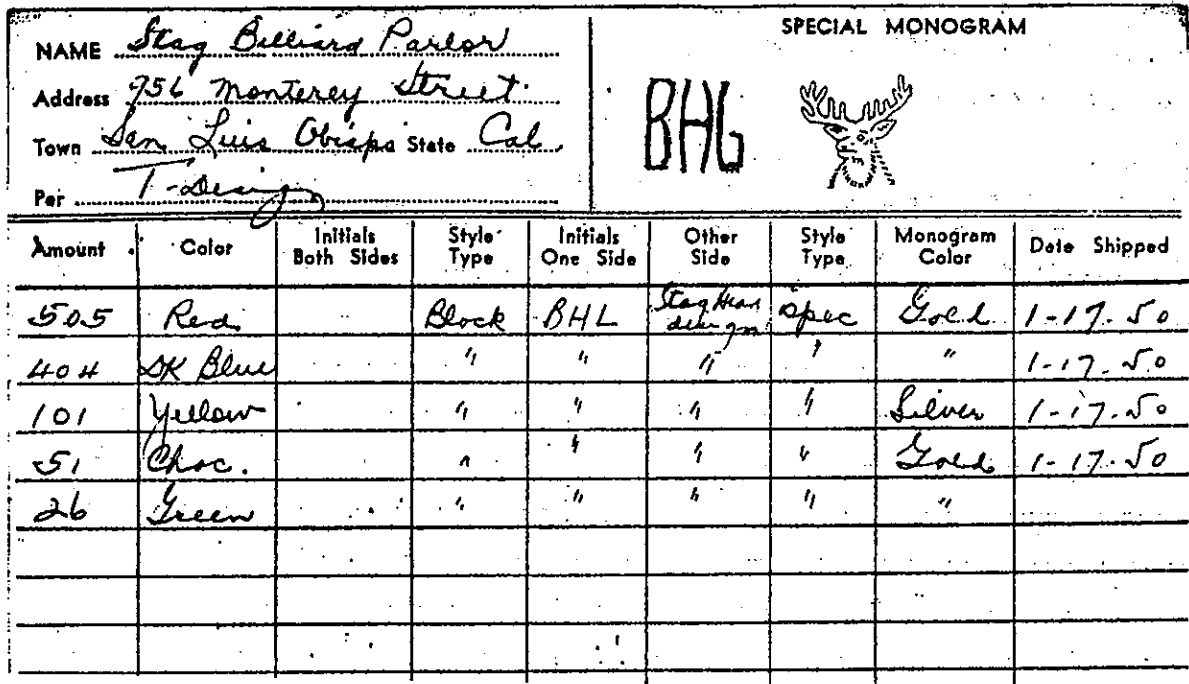 SPECIAL MONOGRAM
NAME Stag Billiard Parlor
Address 956 Monterey Street
Town San Luis Obispo State Cal.
Per T-Desing
BHG
Amount Color Initials Both Sides Style Type Initials One Side Other Side Style Type Monogram Color Date Shipped
505 Red Block BHL Stag Head design spec Gold 1-17-50
404 DK Blue " " " " " 1-17-50
101 Yellow " " " " Silver 1-17-50
51 Choc. " " " " Gold 1-17-50
26 Green " " " " "